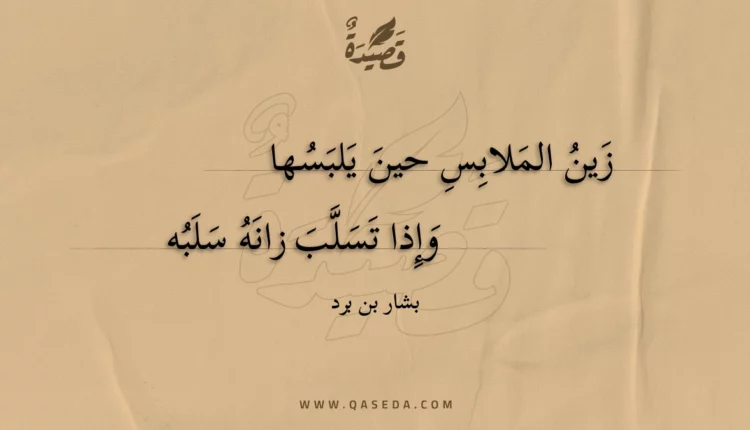 قَصِيْدَةٌ
زَينُ المَلابِسِ حينَ يَلبَسُها
وَإِذا تَسَلَّبَ زانَهُ سَلَبُه
بشار بن برد
WWW.QASEDA.COM